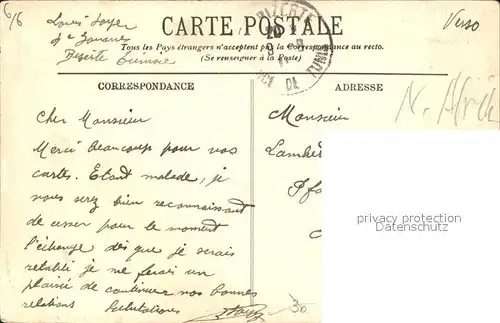 6/6
Louis Soyer
4e Zouaves
Bizerte Tunisie
CARTE POSTALE
Tous les Pays étrangers n'acceptent pas la Correspondance au recto.
(Se renseigner à la Poste)
BIZERTE
TUNISIE
Verso
CORRESPONDANCE
Cher Monsieur
Merci beaucoup pour vos
cartes. Etant malade, je
vous serez bien reconnaissant
de cesser pour le moment
l'échange dès que je serais
rétabli je me ferai un
plaisir de continuer nos bonnes
relations Salutations
ADRESSE
N. Afrik
Monsieur
Lambe
Pfa
privacy protection
Datenschutz.
30